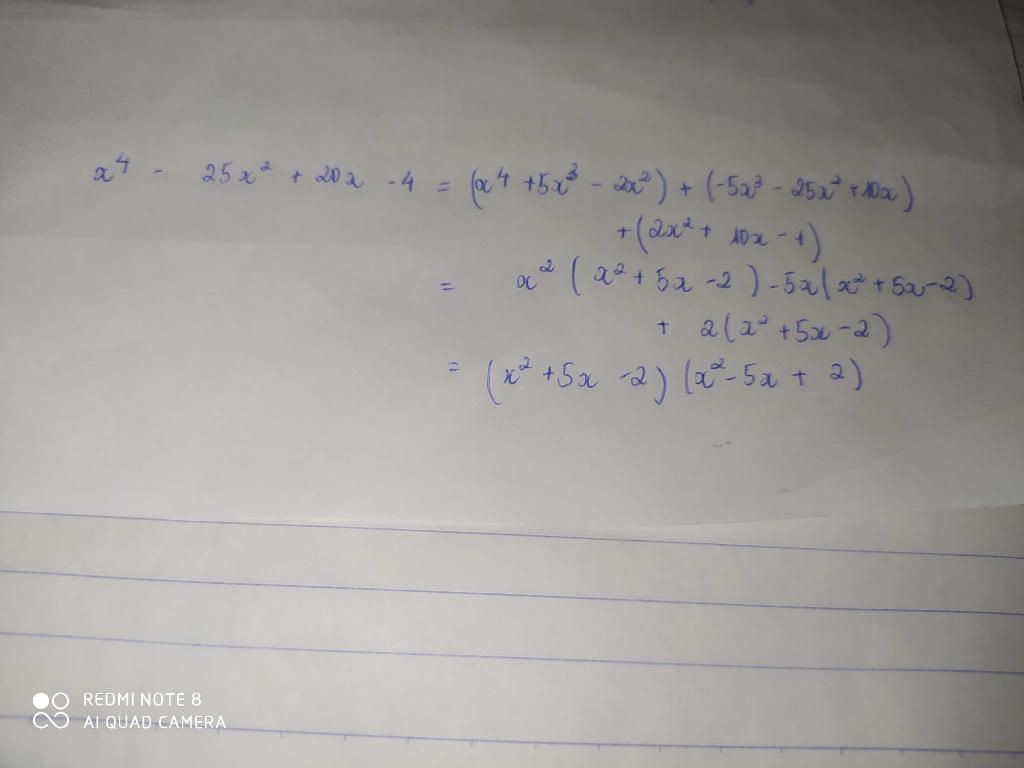 x⁴ - 25x² + 20x - 4 = (x⁴ + 5x³ - 2x²) + (-5x³ - 25x² + 10x)
+ (2x² + 10x - 1)
= x² (x² + 5x - 2) - 5x(x² + 5x - 2)
+ 2(x² + 5x - 2)
= (x² + 5x - 2) (x² - 5x + 2)
REDMI NOTE 8
AI QUAD CAMERA